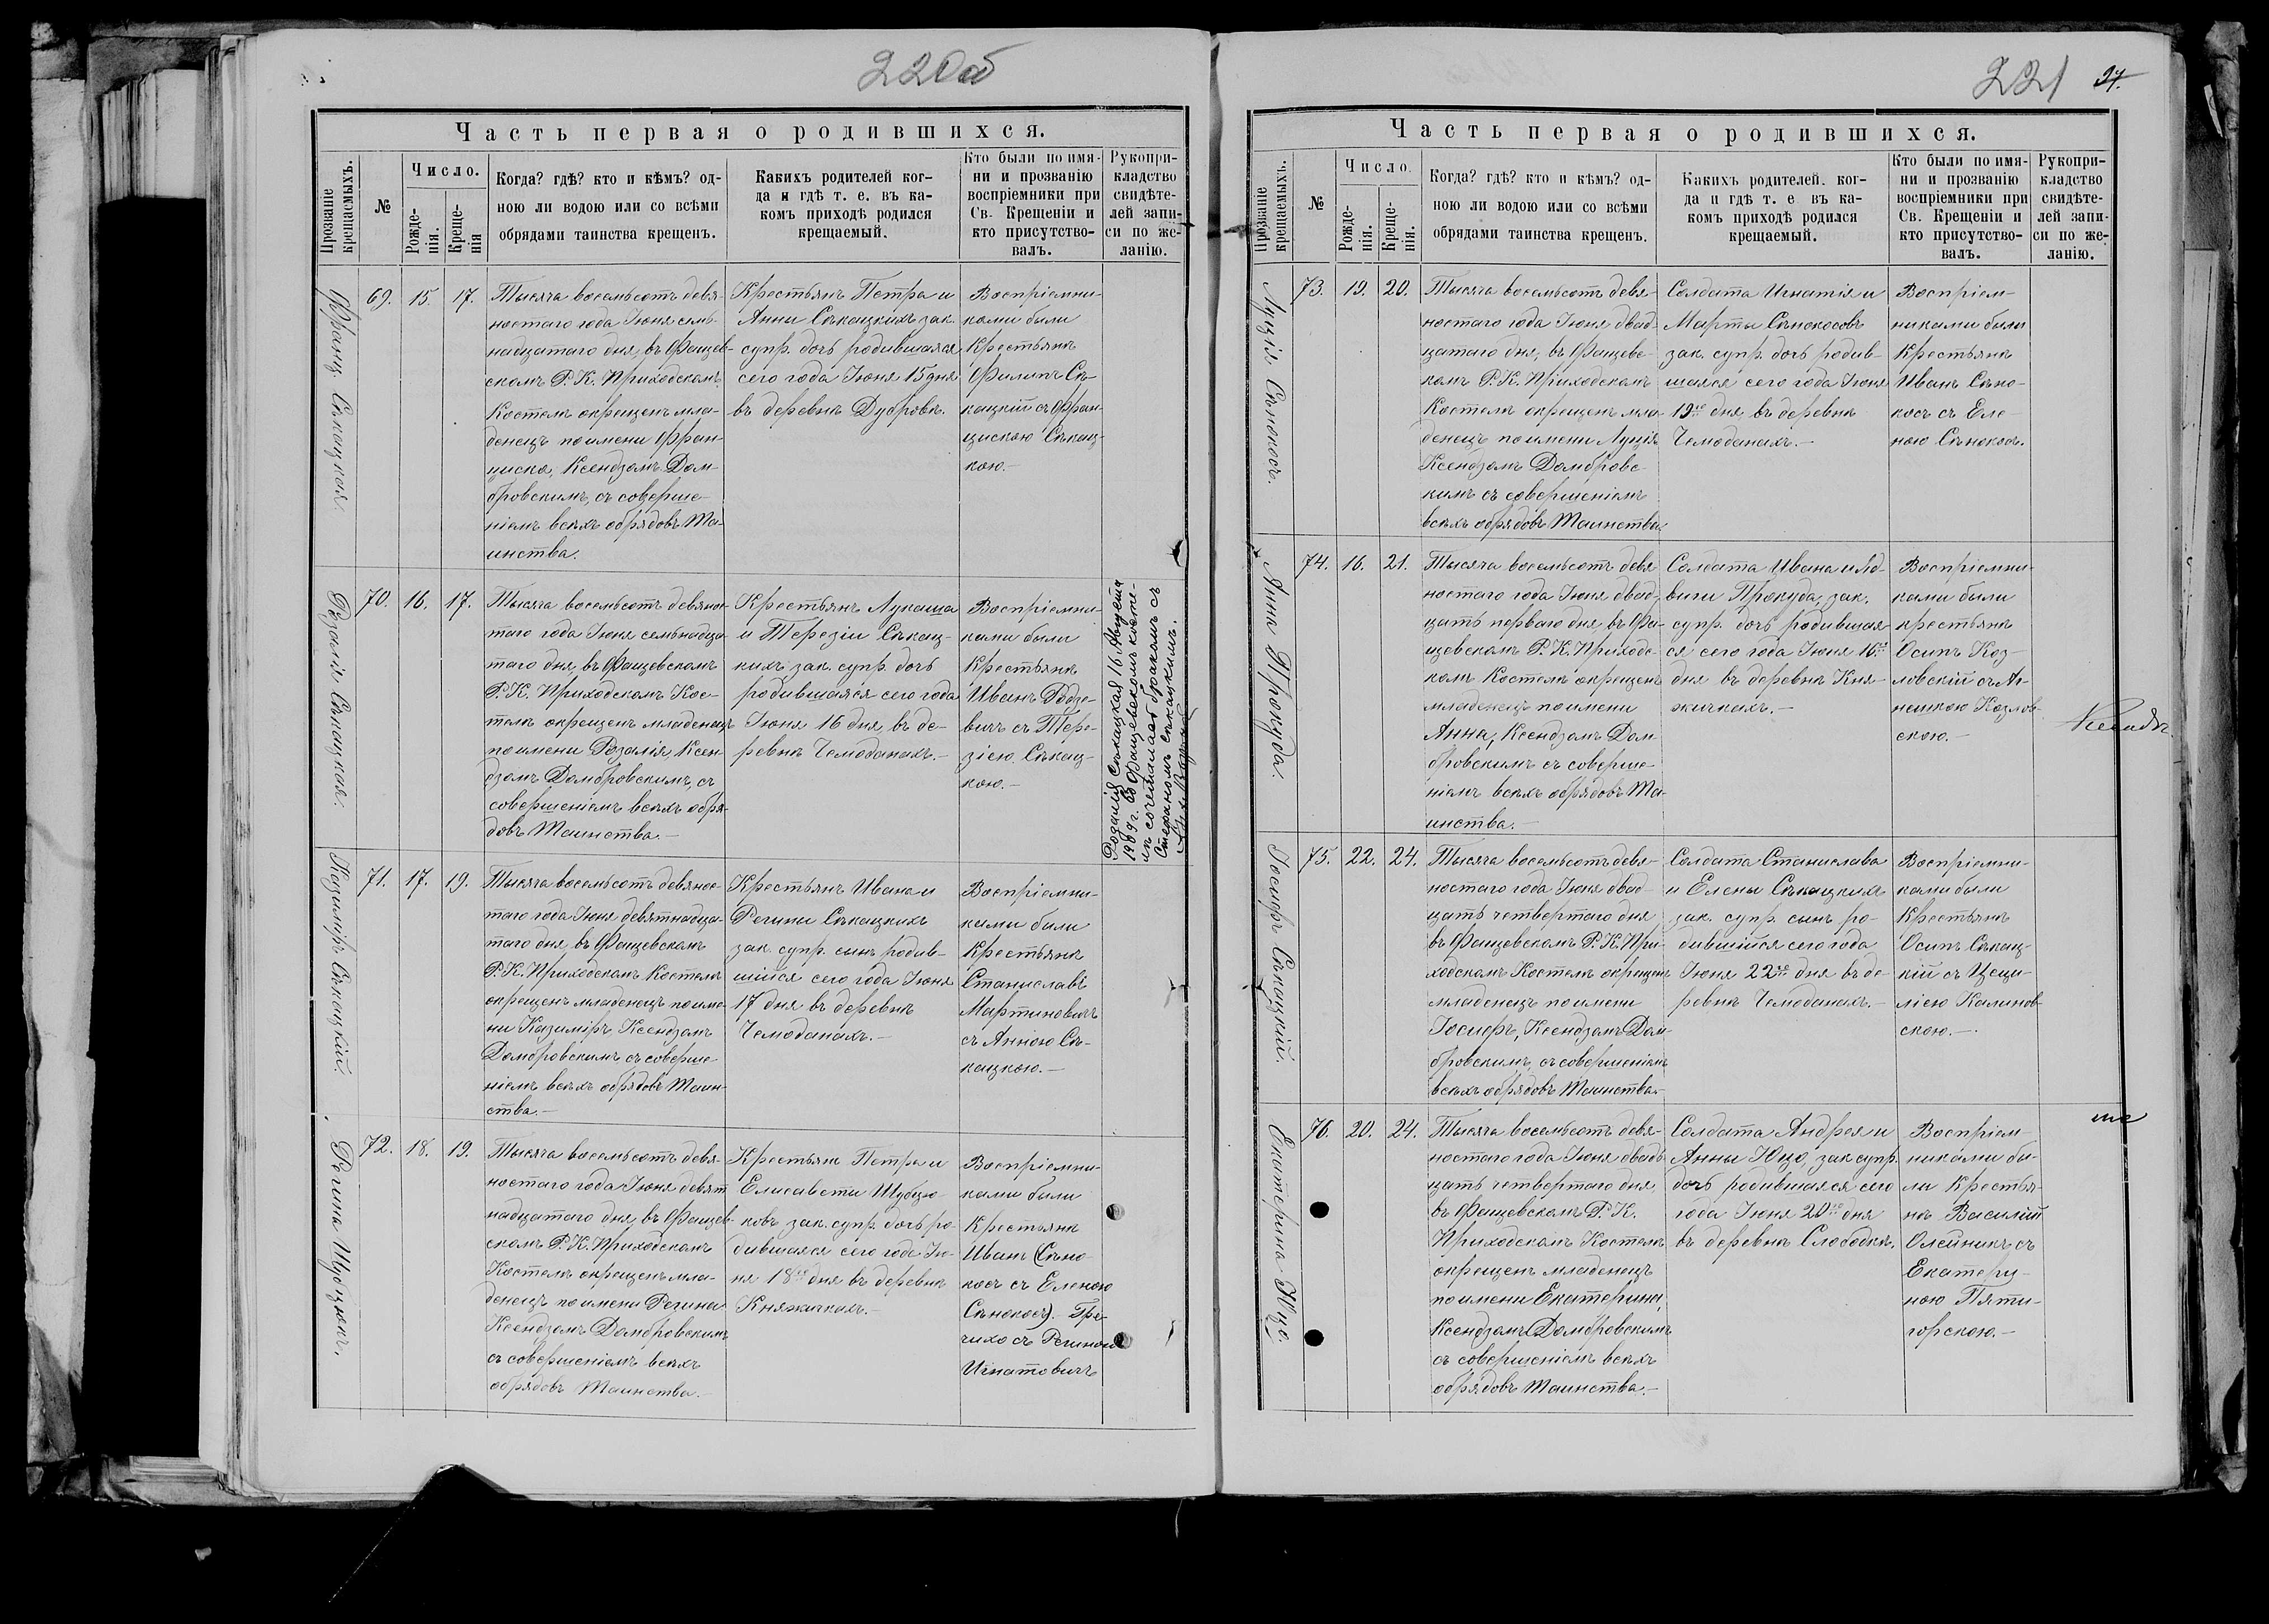 220об
Часть первая о родившихся.
Прозваніе крещаемыхъ.
№
Число.
Рожде-
нія.
Креще-
нія
Когда? гдѣ? кто и кѣмъ? од-
ною ли водою или со всѣми
обрядами таинства крещенъ.
Какихъ родителей ког-
да и гдѣ т. е. въ ка-
комъ приходѣ родился
крещаемый.
Кто были по имя-
ни и прозванію
воспріемники при
Св. Крещеніи и
кто присутство-
валъ.
Рукопри-
кладство
свидѣте-
лей запи-
си по же-
ланію.
Франц. Сѣкацкая.
69. 15. 17.
Тысяча восемьсотъ девя-
ностаго года Іюня семь-
надцатаго дня, въ Фащев-
скомъ Р. К. Приходскомъ
Костелѣ окрещенъ мла-
денецъ по имени Фран-
циска, Ксендзомъ Дом-
бровскимъ, съ соверше-
ніемъ всѣхъ обрядовъ Та-
инства.
Крестьянъ Петра и
Анны Сѣкацкихъ зак.
супр. дочь родившаяся
сего года Іюня 15 дня
въ деревнѣ Дубровкѣ.
Воспріемни-
ками были
Крестьянѣ
Филипъ Сѣ-
кацкій съ Фран-
цискою Сѣкац-
кою.-
Розалія Сѣкацкая.
70. 16. 17.
Тысяча восемьсотъ девянос-
таго года Іюня семьнадца-
таго дня, въ Фащевскомъ
Р. К. Приходскомъ Кос-
телѣ окрещенъ младенецъ
по имени Розалія, Ксен-
дзомъ Домбровскимъ, съ
совершеніемъ всѣхъ обря-
довъ Таинства.-
Крестьянъ Лукаша
и Терезіи Сѣкац-
кихъ зак. супр. дочь
родившаяся сего года
Іюня 16 дня, въ де-
ревнѣ Чемоданахъ.-
Воспріемни-
ками были
Крестьянѣ
Иванъ Родзе-
вичъ съ Тере-
зіею Сѣкац-
кою.-
Розалія Сѣкацкая 16 Августа
1909 г. въ Фащевскомъ косте-
лѣ сочеталась бракомъ съ
Стефаномъ Сѣкацкимъ.
Казиміръ Сѣкацкій.
71. 17. 19.
Тысяча восемьсотъ девянос-
таго года Іюня девятнадца-
таго дня, въ Фащевскомъ
Р. К. Приходскомъ Костелѣ
окрещенъ младенецъ по име-
ни Казиміръ, Ксендзомъ
Домбровскимъ съ соверше-
ніемъ всѣхъ обрядовъ Таин-
ства.-
Крестьянъ Ивана и
Регины Сѣкацкихъ
зак. супр. сынъ родив-
шійся сего года Іюня
17 дня въ деревнѣ
Чемоданахъ.-
Воспріемни-
ками были
Крестьянѣ
Станиславъ
Мартиновичъ
съ Анною Сѣ-
кацкою.-
Регина Шубцюкъ.
72. 18. 19.
Тысяча восемьсотъ девя-
ностаго года Іюня девят-
надцатаго дня, въ Фащев-
скомъ Р. К. Приходскомъ
Костелѣ окрещенъ мла-
денецъ по имени Регина
Ксендзомъ Домбровскимъ
съ совершеніемъ всѣхъ
обрядовъ Таинства.-
Крестьянъ Петра и
Елисаветы Шубцю-
ковъ зак. супр. дочь ро-
дившаяся сего года Ію-
ня 18го дня въ деревнѣ
Княжичкахъ.-
Воспріемни-
ками были
Крестьянѣ
Иванъ (Сѣно-
косъ съ Еленою
Сѣнокосъ).
съ Региною
Игнатовичъ
221
Часть первая о родившихся.
Прозваніе крещаемыхъ.
№
Число.
Рожде-
нія.
Креще-
нія.
Когда? гдѣ? кто и кѣмъ? од-
ною ли водою или со всѣми
обрядами таинства крещенъ.
Какихъ родителей. ког-
да и гдѣ т. е въ ка-
комъ приходѣ родился
крещаемый.
Кто были по имя-
ни и прозванію
воспріемники при
Св. Крещеніи и
кто присутство-
валъ.
Рукопри-
кладство
свидѣте-
лей запи-
си по же-
ланію.
Луція Сѣнокосъ.
73. 19. 20.
Тысяча восемьсотъ девя-
ностаго года Іюня двад-
цатаго дня, въ Фащевс-
комъ Р. К. Приходскомъ
Костелѣ окрещенъ мла-
денецъ по имени Луція
Ксендзомъ Домбровс-
кимъ съ совершеніемъ
всѣхъ обрядовъ Таинства.
Солдата Игнатія и
Марты Сѣнокосовъ
зак. супр. дочь родив-
шаяся сего года Іюня
19го дня въ деревнѣ
Чемоданахъ.-
Воспріем-
никами были
Крестьянѣ
Иванъ Сѣно-
косъ съ Еле-
ною Сѣнокосъ.
Анна Прокуда.
74. 16. 21.
Тысяча восемьсотъ девя
ностаго года Іюня двад-
цать перваго дня въ Фа-
щевскомъ Р. К. Приходс-
комъ Костелѣ окрещенъ
младенецъ по имени
Анна, Ксендзомъ Дом-
бровскимъ съ соверше-
ніемъ всѣхъ обрядовъ Та-
инства.-
Солдата Ивана и Яд-
виги Прокуда, зак.
супр. дочь родившая-
ся сего года Іюня 16го
дня въ деревнѣ Кня-
жичкахъ.-
Воспріемни-
ками были
крестьянѣ
Осипъ Коз-
ловскій съ Аг-
нешкою Козлов-
скою.-
Іосифъ Сѣкацкій.
75. 22. 24.
Тысяча восемьсотъ девя-
ностаго года Іюня двад-
цать четвертаго дня
въ Фащевскомъ Р. К. При-
ходскомъ Костелѣ окрещенъ
младенецъ по имени
Іосифъ, Ксендзомъ Дом-
бровскимъ, съ совершеніемъ
всѣхъ обрядовъ Таинства.-
Солдата Станислава
и Елены Сѣкацкихъ
зак. супр. сынъ ро-
дившійся сего года
Іюня 22го дня въ де-
ревнѣ Чемоданахъ.-
Воспріемни-
ками были
Крестьянѣ
Осипъ Сѣкац-
кій съ Цеци-
ліею Калинов-
скою.-
Екатерина Юцо.
76. 20. 24.
Тысяча восемьсотъ девя-
ностаго года Іюня двад-
цать четвертаго дня
въ Фащевскомъ Р. К.
Приходскомъ Костелѣ
окрещенъ младенецъ
по имени Екатерина,
Ксендзомъ Домбровскимъ
съ совершеніемъ всѣхъ
обрядовъ Таинства.-
Солдата Андрея и
Анны Юцо, зак. супр.
дочь родившаяся сего
года Іюня 20го дня
въ деревнѣ Слободкѣ.
Воспріем-
никами бы-
ли Крестья-
нѣ Василій
Олейникъ съ
Екатери-
ною Пяти-
горскою.-